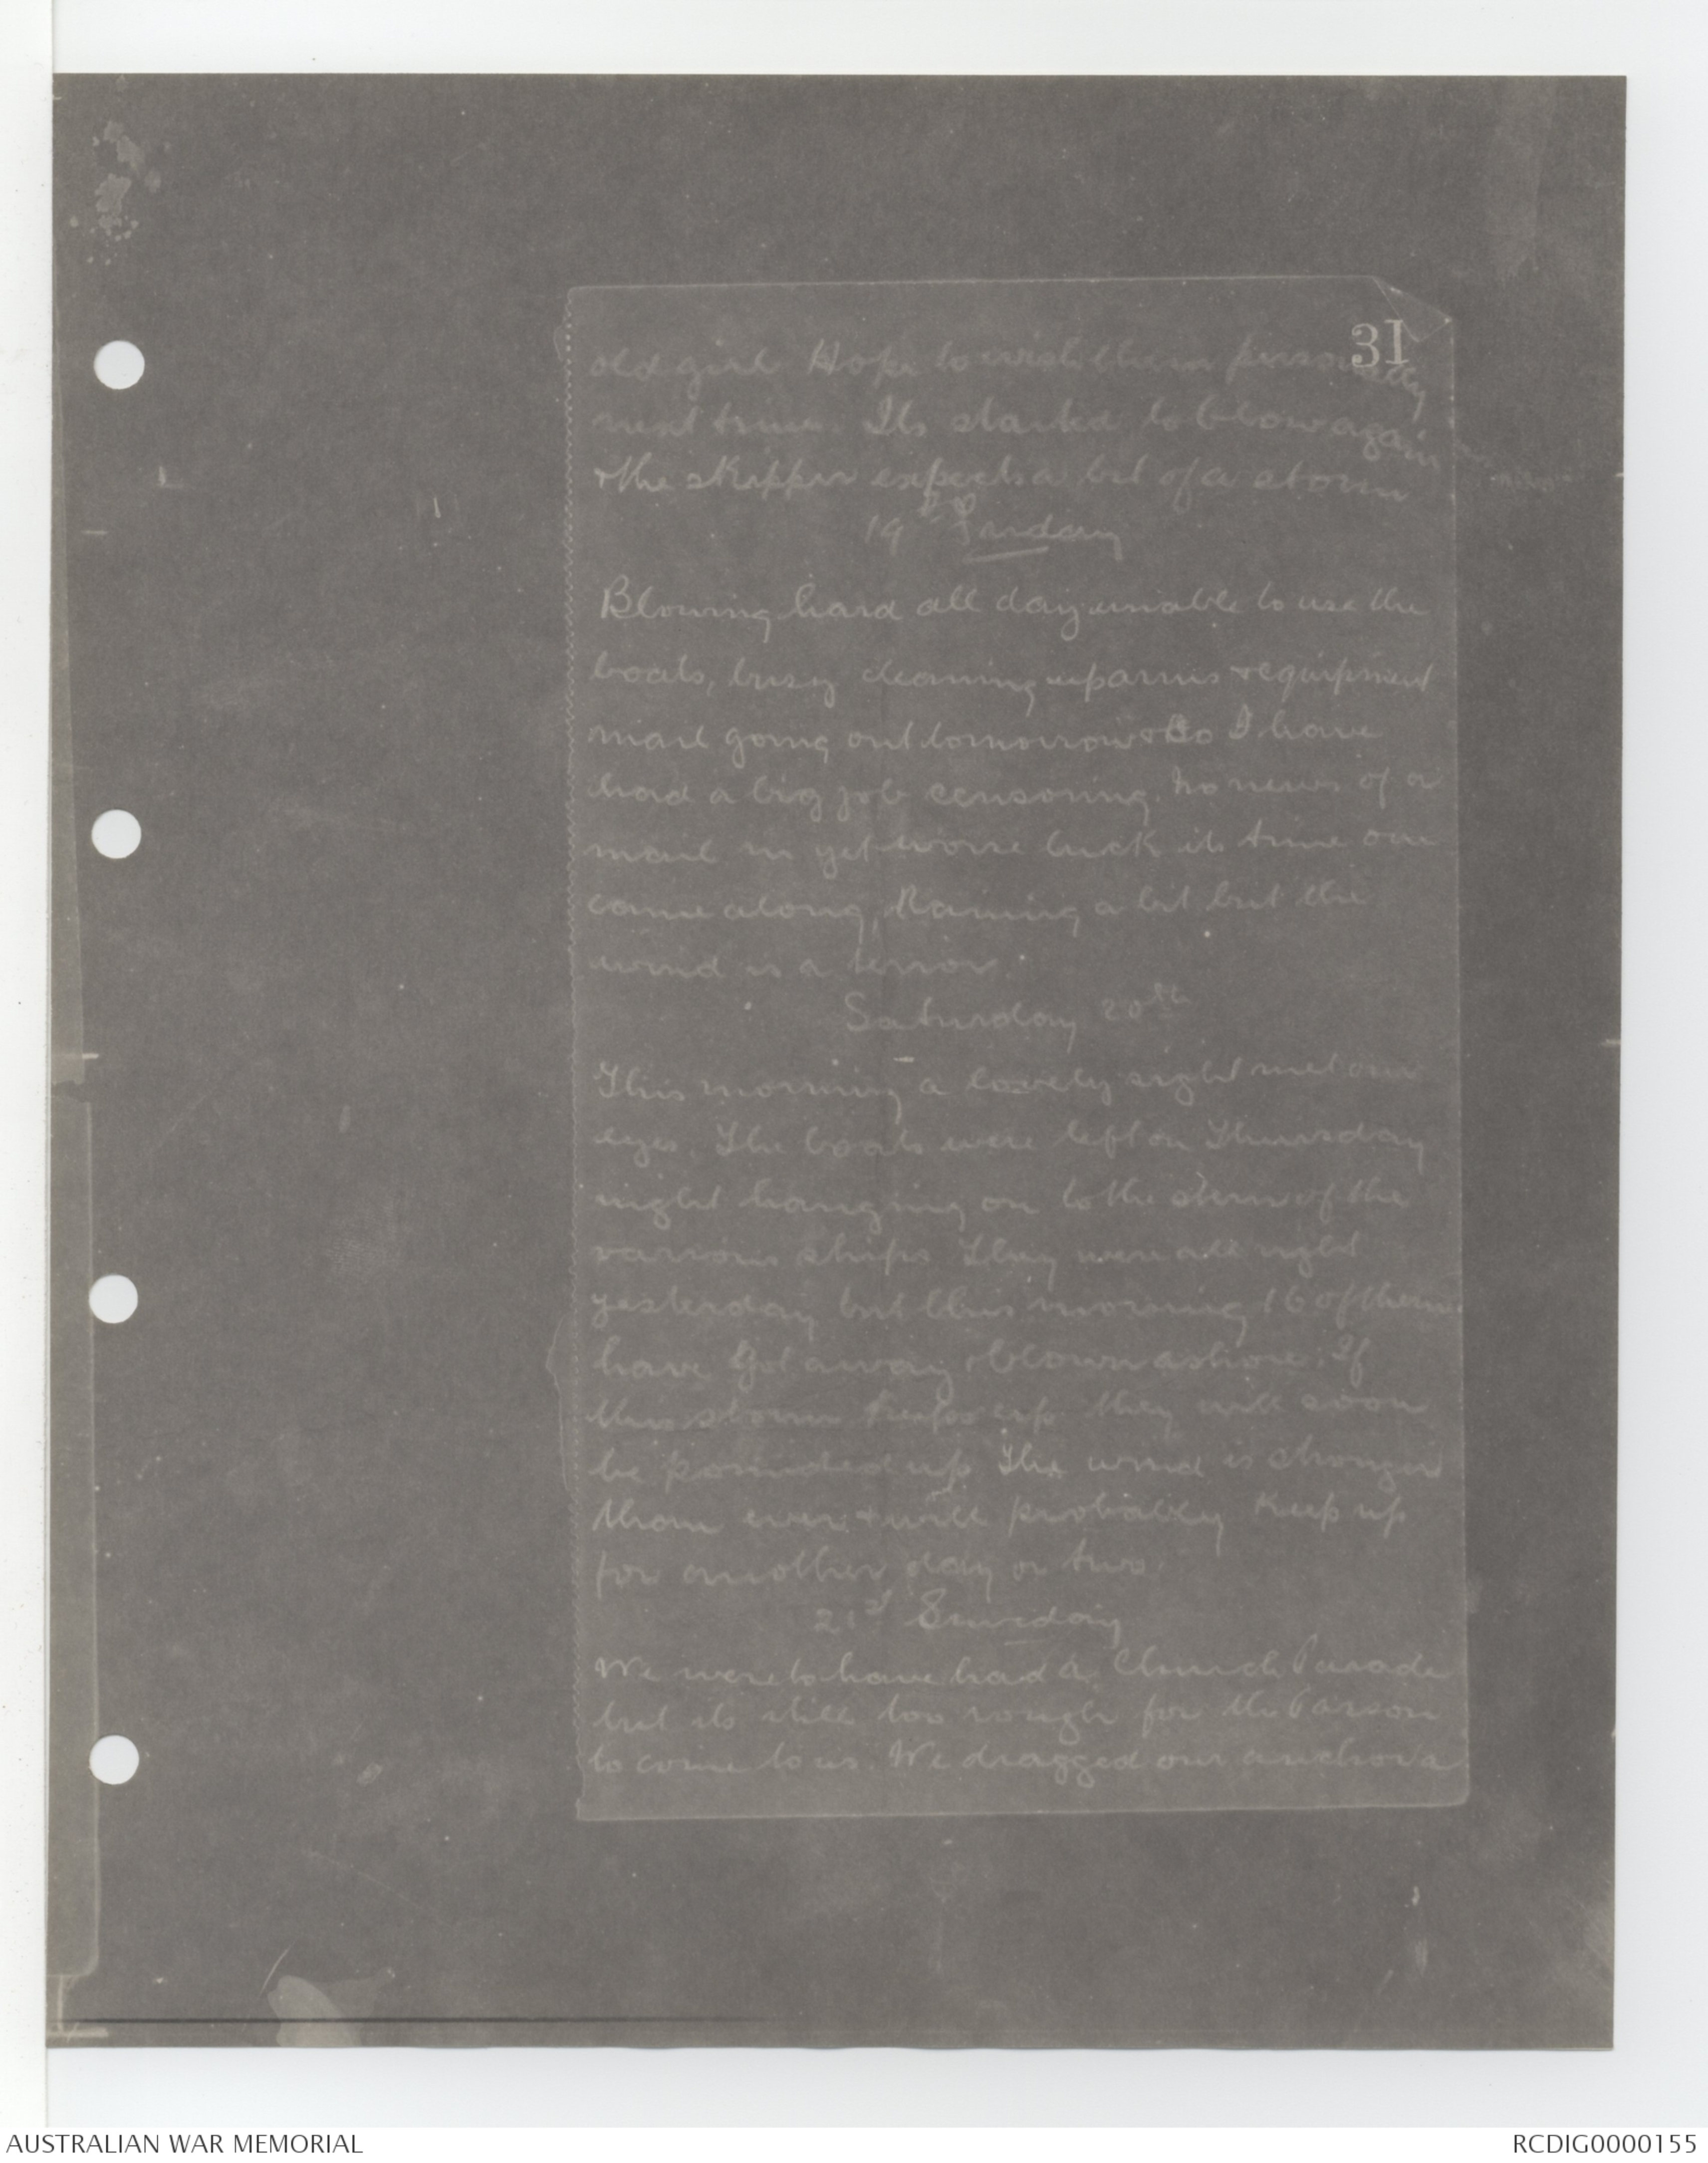 31
old girl Hope to wish them personally
next time. Its started to blow again
& the skipper expects a bit of a storm
19th Friday
Blowing hard all day unable to use the
boats, busy cleaning up arms & equipment
mail going out tomorrow & so I have
had a big job censoring. No news of a
mail in yet worse luck its time one
came along, Raining a bit but the
wind is a terror.
Saturday 20th
This morning a lovely sight met our
eyes. The boats were left on Thursday
night hanging on to the stern of the
various ships They were all right
yesterday but this morning 16 of them
have got away & blown ashore. If
this storm keeps up they will soon
be pounded up. The wind is stronger
than ever & will probably keep up
for another day or two.
21st Sunday
We were to have had a Church Parade
but its still too rough for the Parson
to come to us. We dragged our anchors
AUSTRALIAN WAR MEMORIAL
RCDIG0000155